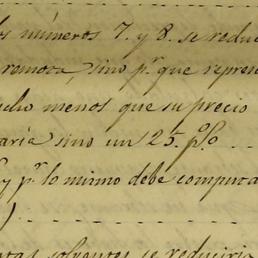 os números 7. y 8. se reduc
remota, sino pr. que repres
cho menos que su precio
aría sino un 25. p%
y pr. lo mismo debe computa
)
ntas solventes se reduciria